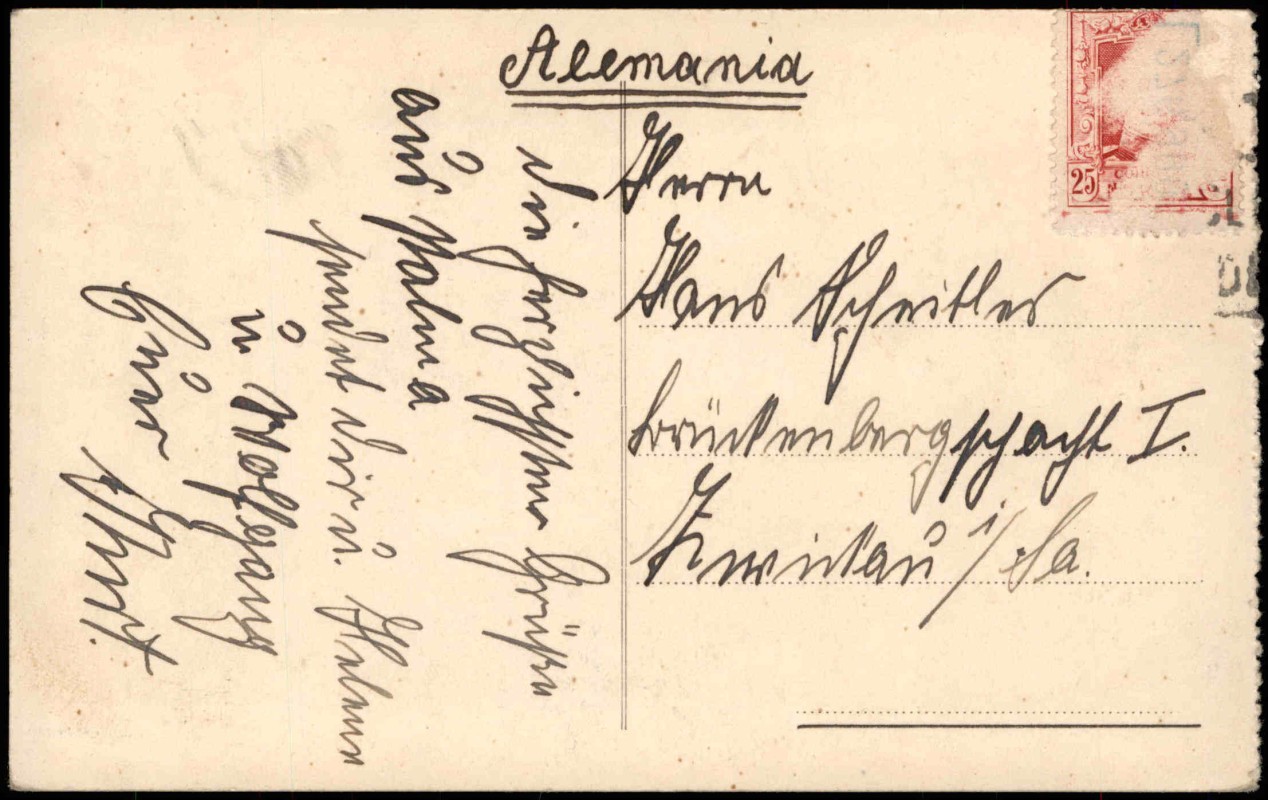 Alemania
Herrn
Hans Scheitler
Brückenbergschacht I.
Zwickau i/Sa.
Die herzlichsten Grüße
aus Palma
sendet Dir u. Helene
u. Wolfgang
Euer Kurt.
25